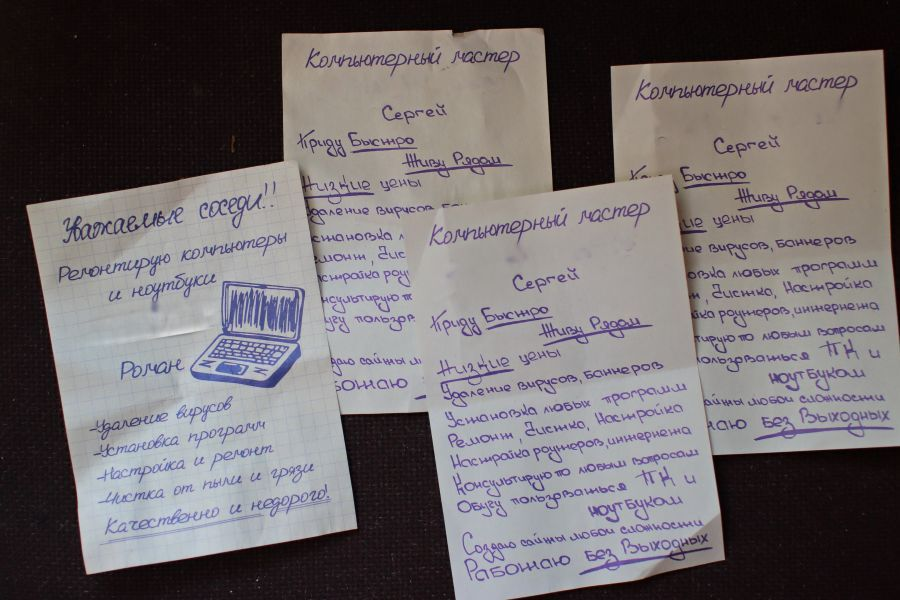 Уважаемые соседи!!
Ремонтирую компьютеры
и ноутбуки
Роман
-Удаление вирусов
-Установка программ
-Настройка и ремонт
-Чистка от пыли и грязи
Качественно и недорого!
Компьютерный мастер
Сергей
Приду Быстро
Живу Рядом
Низкие цены
Удаление вирусов, Бан
становка л
емонт, Чис
астройка роу
нсультирую п
бучу пользов
оздаю сайты л
Работаю
Компьютерный мастер
Сергей
Приду Быстро
Живу Рядом
Низкие цены
Удаление вирусов, Баннеров
Установка любых программ
Ремонт, Чистка, Настройка
Настройка роутеров, интернета
Консультирую по любым вопросам
Обучу пользоваться ПК и
ноутбуком
Создаю сайты любой сложности
Работаю без Выходных
Компьютерный мастер
Сергей
Быстро
Живу Рядом
ие цены
ние вирусов, Баннеров
овка любых программ
т, Чистка, Настройка
йка роутеров, интернета
тирую по любым вопросам
пользоваться ПК и
ноутбуком
айты любой сложности
аю без Выходных